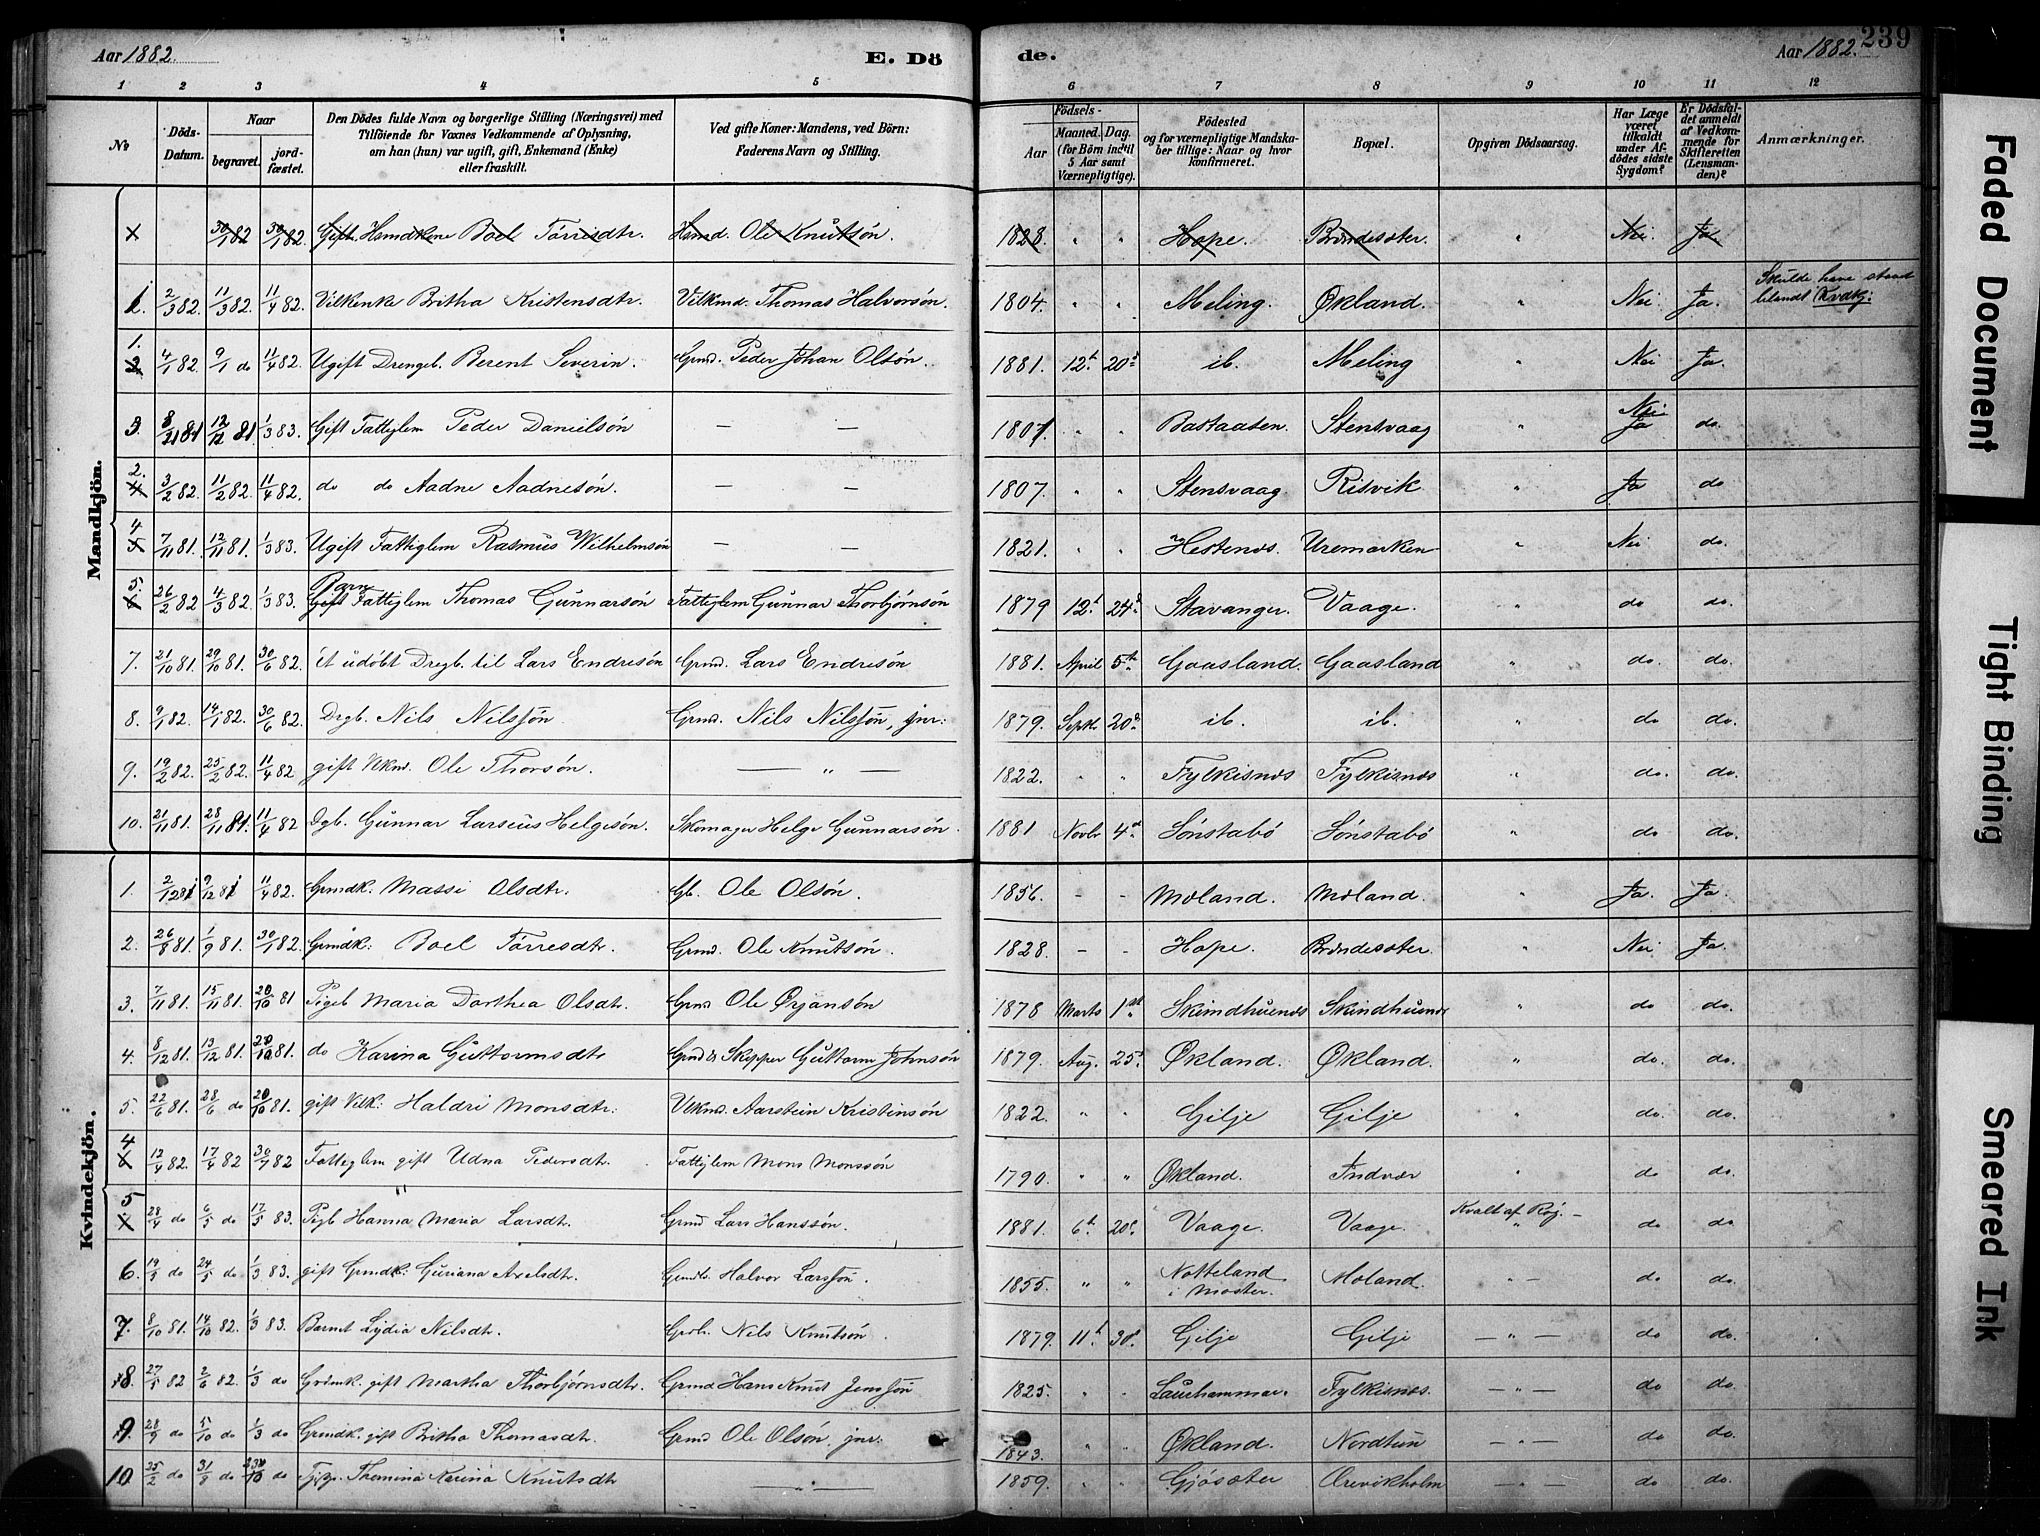 Aar 1882. E. Döde. Aar 1882. 239
1 2 3 4 5 6 7 8 9 10 11 12
№ Döds-Datum. Naar begravet. jordfæstet. Den Dödes fulde Navn og borgerlige Stilling (Næringsvei) med Tilföiende for Voxnes Vedkommende af Oplysning, om han (hun) var ugift, gift, Enkemand (Enke) eller fraskilt. Ved gifte Koner: Mandens, ved Börn: Faderens Navn og Stilling. Födsels- Aar Maaned. Dag. (for Börn indtil 5 Aar samt Værnepligtige). Födested og for værnepligtige Mandskaber tillige: Naar og hvor konfirmeret. Bopæl. Opgiven Dödsaarsag. Har Læge været tilkaldt under Afdödes sidste Sygdom? Er Dödsfaldet anmeldt af Vedkommende for Skifteretten (Lensmanden)? Anmærkninger.
Mandkjön.
30/1 82 30/1 82. Gift Hsmdkone Boel Tørrisdtr. Hsmd. Ole Knutsøn. 1828. " " Hope. Brændesæter. " Nei. Ja.
1. 2/3 82. 11/3 82. 11/4 82. Vilkenke Britha Kristensdtr. Vilkmd. Thomas Halvorsøn. 1804. " " Meling. Økland. " Nei Ja. Skulde have staad blandt Kvdkj:
1. 4/1 82. 9/1 do 11/4 82. Ugift Drengb. Berent Severin. Grmd. Peder Johan Olsøn. 1881. 12t 20d ib. Meling " Nei Ja.
3. 8/11 81 12/11 81. 1/3 83. Gift Fattiglem Peder Danielsøn — — 1807. " " Bastaasen. Stensvaag " Nei Ja do.
2. 3/2 82. 11/2 82. 11/4 82. do do Aadne Aadnesøn. — — 1807. " " Stensvaag Risvik " Ja do
4 7/11 81. 12/11 81. 1/3 83. Ugift Fattiglem Rasmus Wilhelmsøn — — 1821. " " Hestenæs. Uremarken " Nei do.
5. 26/2 82 4/3 82. 1/3 83. Barn Gift Fattiglem Thomas Gunnarsøn Fattiglem Gunnar Thorbjørnsøn 1879 12t 24d Stavanger. Vaage. " do do.
7. 21/10 81. 29/10 81. 30/6 82. Et udøbt Drgb. til Lars Endresøn Grmd. Lars Endresøn 1881. April 5te Gaasland. Gaasland " do. do.
8. 9/1 82. 14/1 82. 30/6 82. Drgb. Nils Nilssøn. Grmd. Nils Nilssøn, jnr: 1879. Septb 20d ib. ib. " do do.
9. 19/2 82. 25/2 82. 11/4 82 gift Vlkmd. Ole Thorsøn. — " — 1822. " " Fylkisnæs Fylkisnæs " do. do.
10. 21/11 81. 28/11 81. 11/4 82 Dgb. Gunnar Larseus Helgesøn. Skomager Helge Gunnarsøn. 1881 Novbr 4d Sønstabø Sønstabø " do do.
Kvindekjön.
1. 2/12 81 9/12 81 11/4 82. Grmdk. Massi Olsdtr. Gb. Ole Olsøn. 1856. - - Mœland. Mœland. " Ja. Ja.
2. 26/8 81. 1/9 81. 30/1 82. Grmdk: Boel Tørresdtr. Grmd. Ole Knutsøn. 1828. - - Hope. Brændesæter. " Nei Ja.
3. 7/11 81. 15/11 81. 20/10 81 Pigeb Maria Dorthea Olsdtr. Grmd Ole Ørjansøn 1878 Marts 1ste Skindhuenæs Skindhuenæs " do do.
4. 8/12 81. 13/12 81. 20/10 81. do Karina Guttormsdtr Grmd & Skipper Guttorm Johnsøn 1879. Aug. 25d Økland. Økland. " do. do.
5. 22/6 81. 28/6 do 20/10 81. gift Vilk: Haldri Monsdtr: Vlkmd. Aarstein Kristensøn 1822. " " Gilje Gilje " do. do.
4 12/4 82. 17/4 82 30/1 82 Fattiglem gift Udna Pedersdtr. Fattiglem Mons Monssøn 1790. " " Økland. Indvær " do do.
5 28/4 do 6/5 do 17/5 83. Pigb Hanna Maria Larsdtr. Grmd Lars Hanssøn. 1881. 6t 20d Vaage. Vaage. Kvalt af Røg. — " do do
6. 19/5 do 24/5 do 1/3 83. gift Grmdk: Guriana Axelsdtr. Grmdbr. Halvor Larssøn. 1855. " " Notteland i Moster. Mœland. " — do do.
7. 8/10 81. 14/10 82. 1/3 83. Barnet Lydia Nilsdtr. Grbr. Nils Knutsøn. 1879. 11t 30d Gilje Gilje — " — do do.
8. 27/5 82 2/6 82. 1/3 do Grdmk. gift Martha Thorbjørnsdtr. Grmd Hans Knut Jenssøn 1825. " " Laurhammar. Fylkisnæs. — " — do do.
9. 28/9 do 5/10 do 1/3 do Grmdk. gift Britha Thomasdtr. Grmd Ole Olsøn, jnr: 1843. " " Økland. Nordtun — " — do do.
10. 25/2 do 31/8 do do Themina Karina Knutsdtr — " — 1859. " " Gjøsæter Ørevikholm — " — do do.
Faded Document
Tight Binding
Smeared Ink